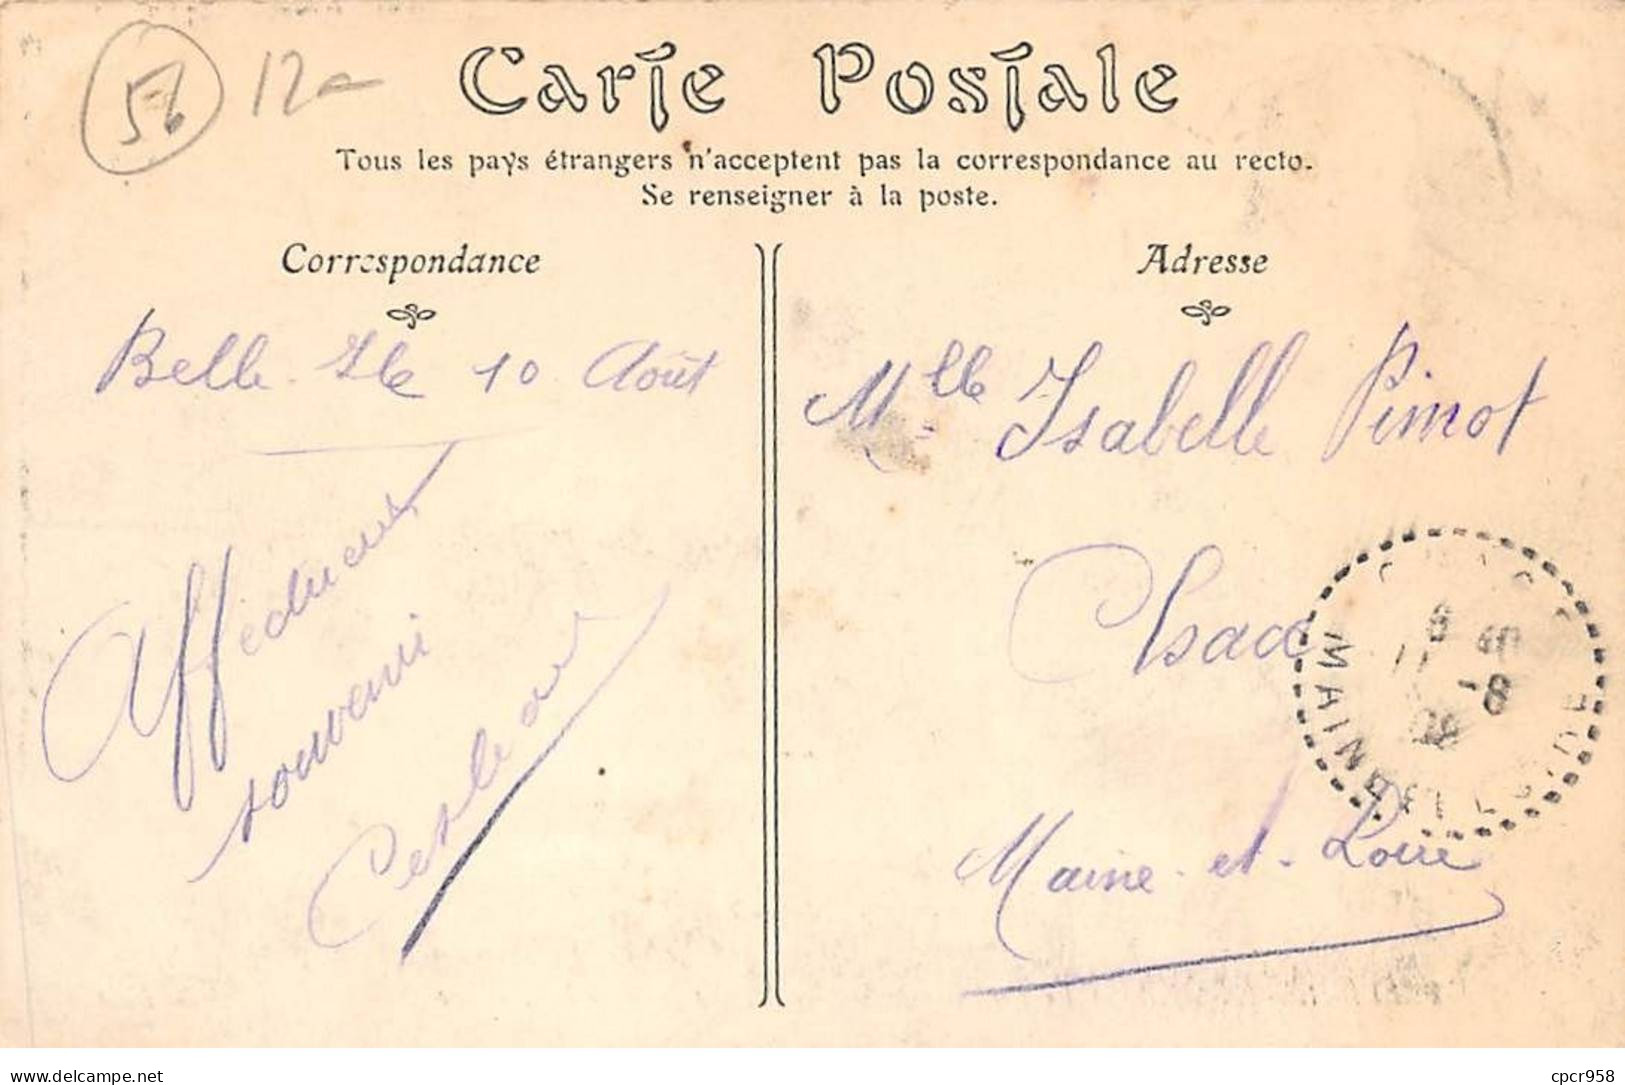 56 12
Carte Postale
Tous les pays étrangers n'acceptent pas la correspondance au recto.
Se renseigner à la poste.
Correspondance
Belle Ile 10 Août
Affectueux
souvenir
Adresse
Mlle Isabelle Pimot
Maine-et-Loire
MAINE
11
-8
08
delcampe.net
cpcr958